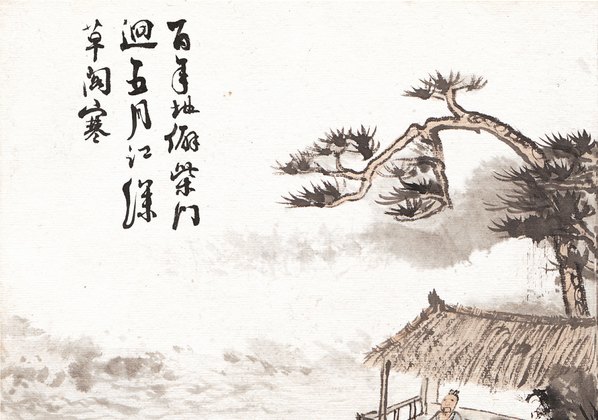 百年地僻柴门
逈五月江深
草阁寒